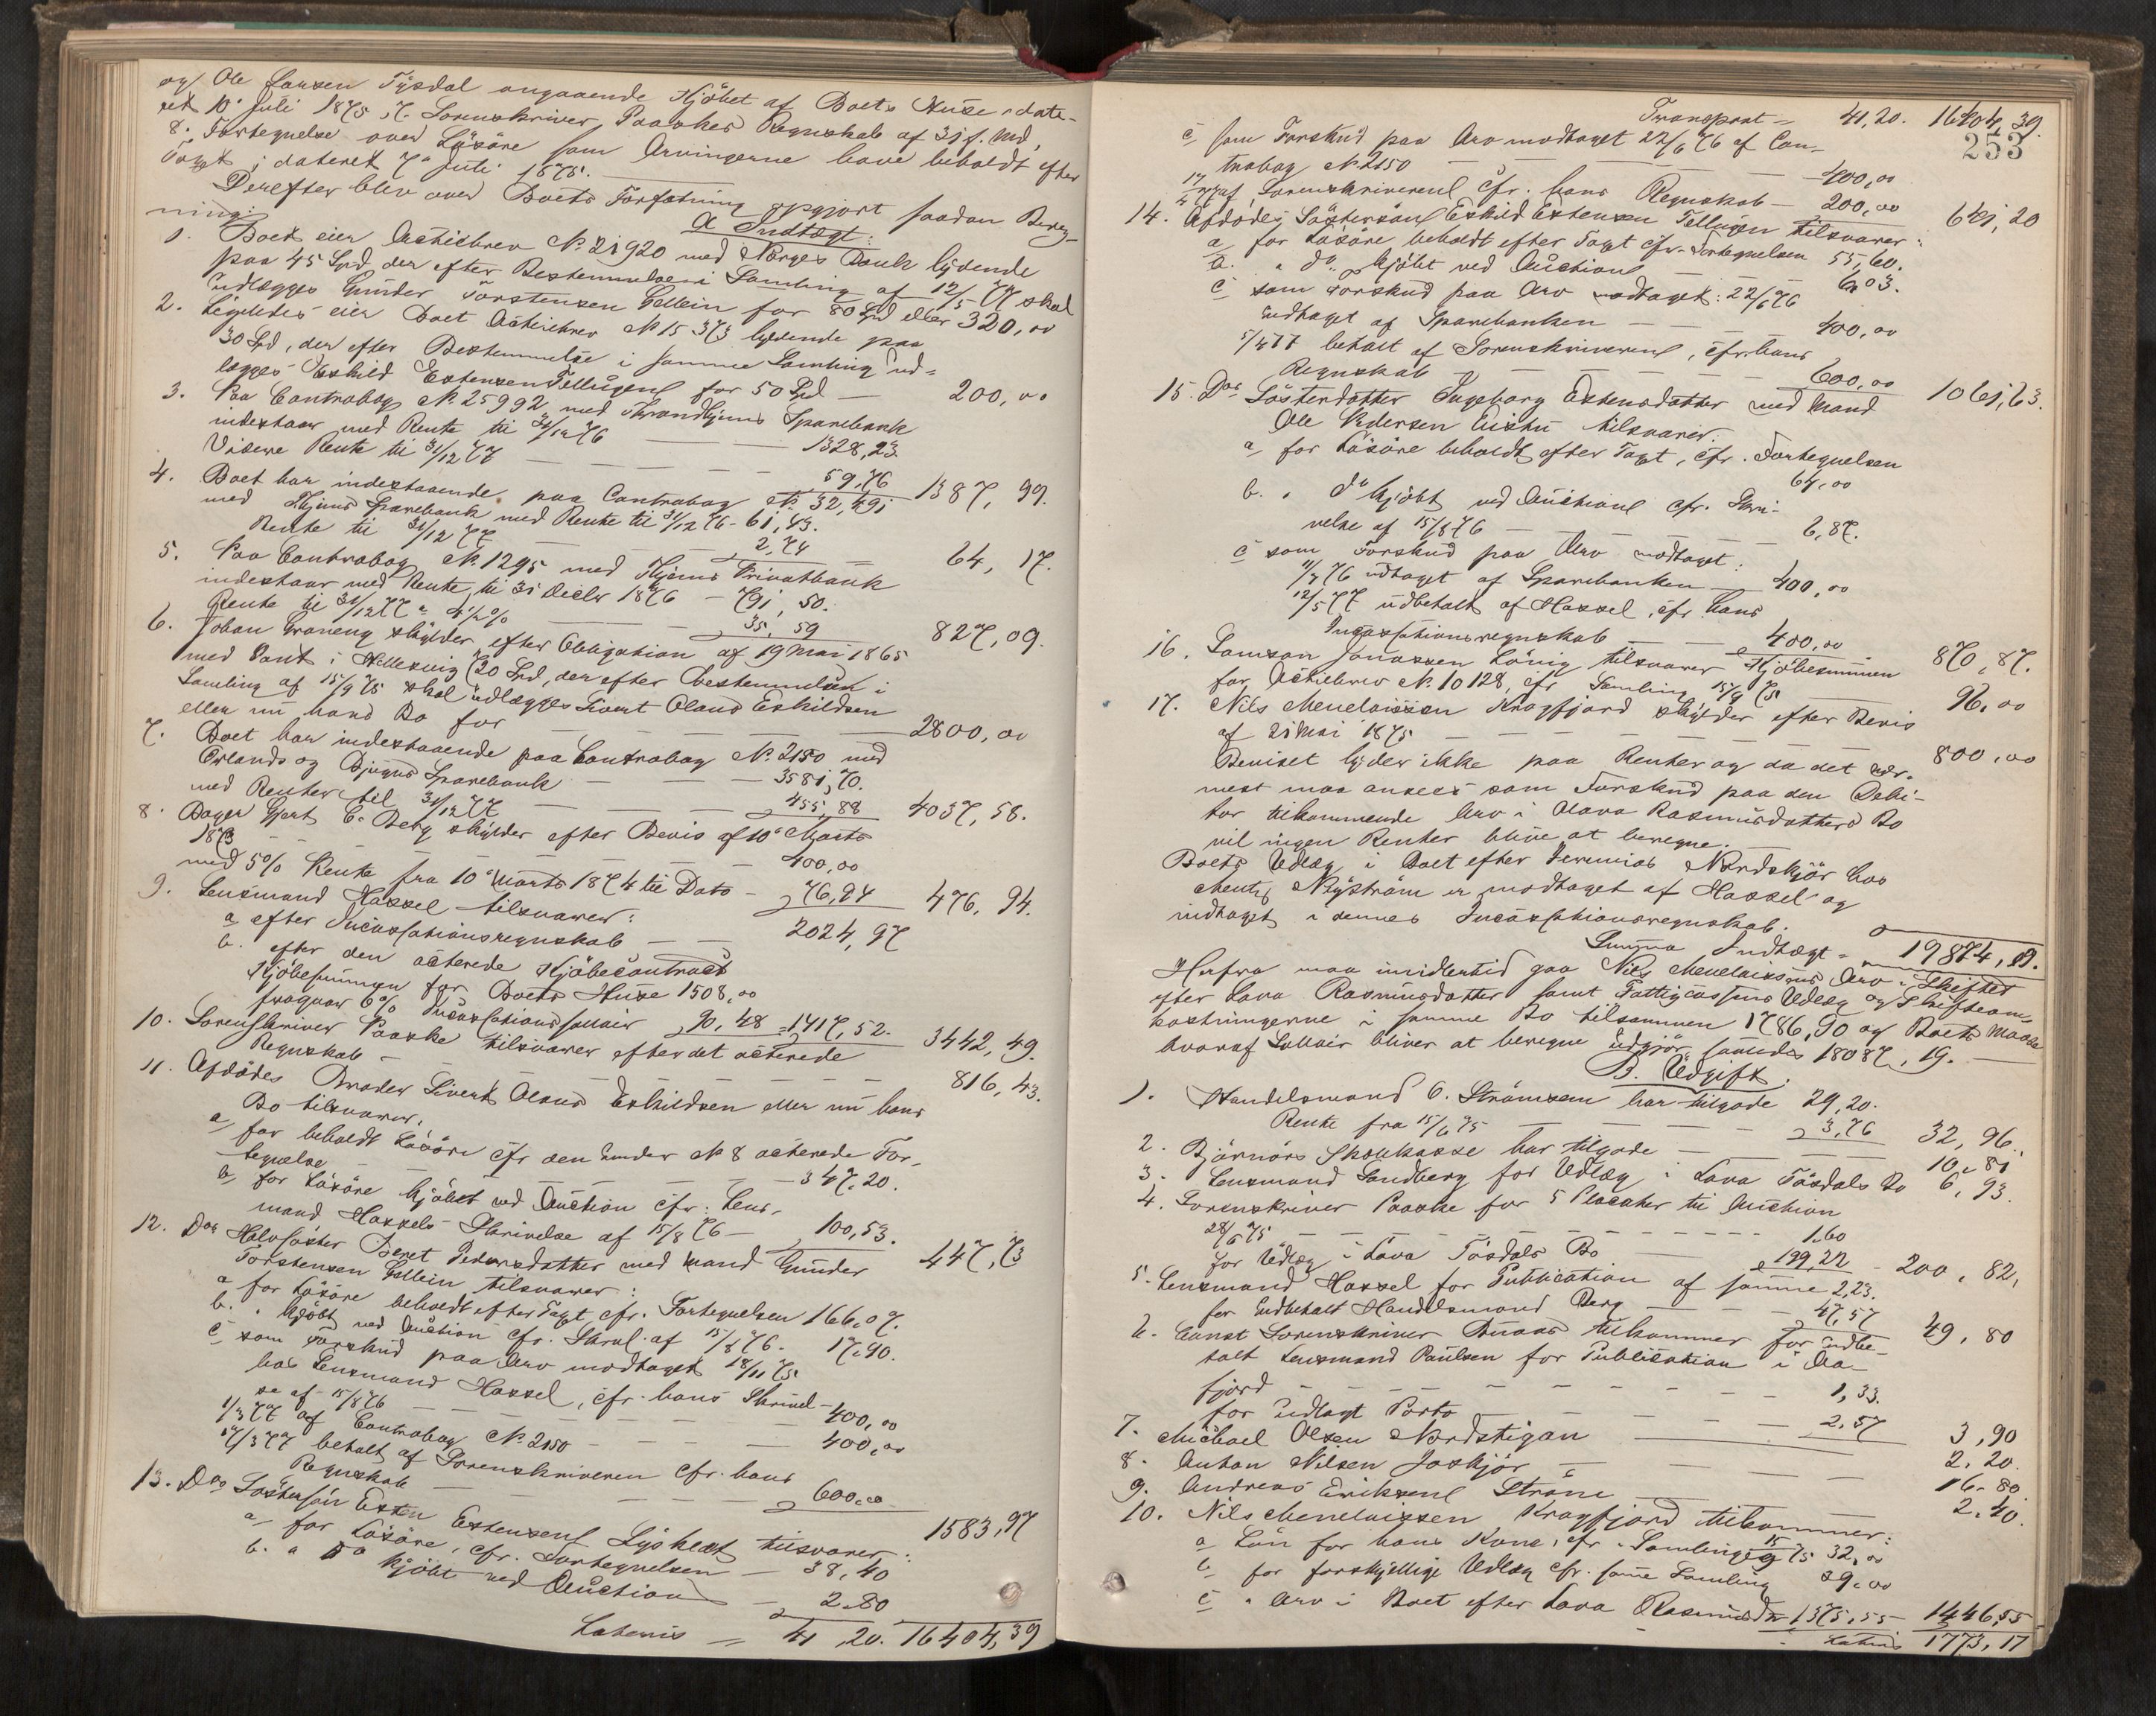 og Ole Larsen Tøsdal angaaende Kjöbet af Boets Huse, date-
ret 10de Juli 1875, 7. Sorenskriver Paaskes Regnskab af 31 f. Md,
8. Fortegnelse over Lösöre som Arvingerne have beholdt efter
Taxt, dateret 7de Juli 1875.
Derefter blev over Boets Forfatning opgjort saadan Bereg-
ning:
A Indtægt:
1. Boet eier Actiebrev No 21920 med Norges Bank lydende
paa 45 Spd der efter Bestemmelsen i Samling af 12/5 77 skal
udlægges Gunder Torstensen Gellein for 80 Spd eller 320,00
2. Ligeledes eier Boet Actiebrev No 15373 lydende paa
30 Spd, der efter Bestemmelse i samme Samling ud-
lægges Eskild Estensen Tellugen for 50 Spd — 200,00
3. Paa Contrabog No 25992 med Throndhjems Sparebank
indestaar med Rente til 31/12 76 — 1328,23.
Videre Rente til 31/12 77 — 59,76 1387,99.
4. Boet har indestaaende paa Contrabog No 32,491
med Thjems Sparebank med Rente til 31/12 76 - 61,43.
Rente til 31/12 77 — 2,74 64,17.
5. Paa Contrabog No 1295 med Thjems Privatbank
indestaar med Rente til 31 Decbr 1876 — 791,50.
Rente til 31/12 77 a 4 1/2 % 35,59 827,09.
6. Johan Graneng skylder efter Obligation af 19 Mai 1865
med Pant i Hellesvig 720 Spd, der efter Bestemmelsen i
Samling af 15/9 75 skal udlægges Sivert Olaus Eskildsen
eller nu hans Bo for — 2800,00
7. Boet har indestaaende paa Contrabog No 2150 med
Ørlands og Bjugns Sparebank — 3581,70.
med Renter til 31/12 77 — 455,88 4037,58.
8. Bager Gjert C. Berg skylder efter Bevis af 10de Marts
1873 — 400,00
med 5% Rente fra 10de Marts 1874 til Dato — 76,94 476,94.
9. Lensmand Hassel tilsvarer:
a efter Incassationsregnskab — 2024,97
b. efter den acterede Kjöbecontract
Kjöbesummen for Boets Huse 1508,00
fragaar 6% Incassationssallair 90,48 = 1417,52. 3442,49.
10. Sorenskriver Paaske tilsvarer efter det acterede
Regnskab — 816,43.
11. Afdödes Broder Sivert Olaus Eskildsen eller nu hans
Bo tilsvarer:
a/ for beholdt Lösöre cfr den under No 8 acterede For-
tegnelse — 347,20.
b/ for Lösöre kjöbt ved Auction cfr. Lens-
mand Hassels Skrivelse af 15/8 76 — 100,53. 447,73
12. Dos Halvsöster Beret Pedersdatter med Mand Gunder
Torstensen Gellein tilsvarer:
a for Lösöre beholdt efter Taxt cfr. Fortegnelsen 166,07.
b. " kjöbt ved Auction cfr. Skrivl. af 15/8 76. 17,90.
c som Forskud paa Arv modtaget 18/11 75
hos Lensmand Hassel, cfr. hans Skrivel-
se af 15/8 76 — 400,00
1/3 77 af Contrabog No 2150 — 400,00
/3 77 betalt af Sorenskriveren cfr. hans
Regnskab — 600,00 1583,97
13. Dos Söstersön Esten Estensen Lysklæt tilsvarer:
a/ for Lösöre, cfr. Fortegnelsen — 38,40
b. " do kjöbt ved Auction — 2,80
Lateris = 41,20. 16404,39
Transport = 41,20. 16404,39.
253
c som Forskud paa Arv modtaget 22/6 76 af Con-
trabog No 2150 — 400,00
17/4 77 af Sorenskriveren cfr. hans Regnskab — 200,00 641,20
14. Afdödes Söstersön Eskild Estensen Tellugen tilsvarer:
a for Lösöre beholdt efter Taxt cfr. Fortegnelsen 55,60.
b. " do kjöbt ved Auction — 6,03.
c som Forskud paa Arv modtaget: 22/6 76
udtaget af Sparebanken — 400,00
5/4 77 betalt af Sorenskriveren, cfr. hans
Regnskab — 600,00 1061,63.
15. Dos Sösterdatter Ingeborg Estensdatter med Mand
Ole Pedersen tilsvarer:
a for Lösöre beholdt efter Taxt, cfr. Fortegnelsen
64,00
b. " do kjöbt ved Auction cfr. Skri-
velse af 15/8 76 — 6,87.
c som Forskud paa Arv modtaget:
76 udtaget af Sparebanken — 400,00
12/5 77 udbetalt af Hassel, cfr. hans
Incassationsregnskab — 400,00 870,87.
16. Samson Jonassen Lönig tilsvarer Kjöbesummen
for Actiebrev No 10128, cfr Samling 15/9 75 — 96,00
17. Nils Menelaissen Kragfjord skylder efter Bevis
af 21 Mai 1875 — 800,00
Beviset lyder ikke paa Renter og da det nær-
mest maa ansees som Forskud paa den Debi-
tor tilkommende Arv i Lava Rasmusdatters Bo
vil ingen Renter blive at beregne. —
Boets Udlæg i Boet efter Jeremias Nordskjör hos
Mentz Nyström er modtaget af Hassel og
indtaget i dennes Incassationsregnskab.
Summa Indtægt = 19874,09.
Herfra maa imidlertid gaa Nils Menelaissens Arv i Skiftet
efter Lava Rasmusdatter samt Fattigcassens Udlæg og Skifteom-
kostningerne i samme Bo tilsammen 1786,90 og Boets Masse
hvoraf Sallair bliver at beregne udgjør saaledes 18087,19. —
B. Udgift.
1. Handelsmand O. Strömsem har tilgode 29,20.
Rente fra 15/6 75 — 3,76 32,96.
2. Björnörs Skolekasse har tilgode — 10,81
3. Lensmand Sandberg for Udlæg i Lava Tösdals Bo 6,93.
4. Sorenskriver Paaske for 5 Placater til Auction
28/6 75 — 1,60
for Udlæg i Lava Tösdals Bo — 199,22 — 200,82,
5. Lensmand Hassel for Publication af samme 2,23.
for udbetalt Handelsmand Berg — 47,57 49,80
6. Const Sorenskriver tilkommer for udbe-
talt Lensmand Paulsen for Publication i Aa-
fjord — 1,33.
for udlagt Porto — 2,57 3,90
7. Michael Olsen Nordstigan — 2,20.
8. Anton Nilsen Joskjör — 16,80.
9. Andreas Eriksen Ströne — 2,40.
10. Nils Menelaissen Kragfjord tilkommer:
a Lön for hans Kone, cfr. Samling 15/9 75 32,00
b for forskjellige Udlæg cfr. samme Samling 39,00
c " Arv i Boet efter Lava Rasmusdtr 1375,55 1446,55
Lateris 1773,17